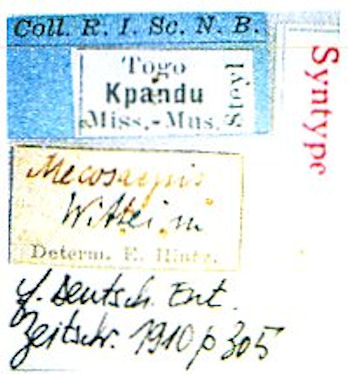 Coll. R. I. Sc. N. B.
Togo
Kpandu
Miss.-Mus. Steyl
Syntype
Mecosaspis
Wittei m
Determ. E. Hintz.
cf. Deutsch. Ent.
Zeitschr. 1910 p 305